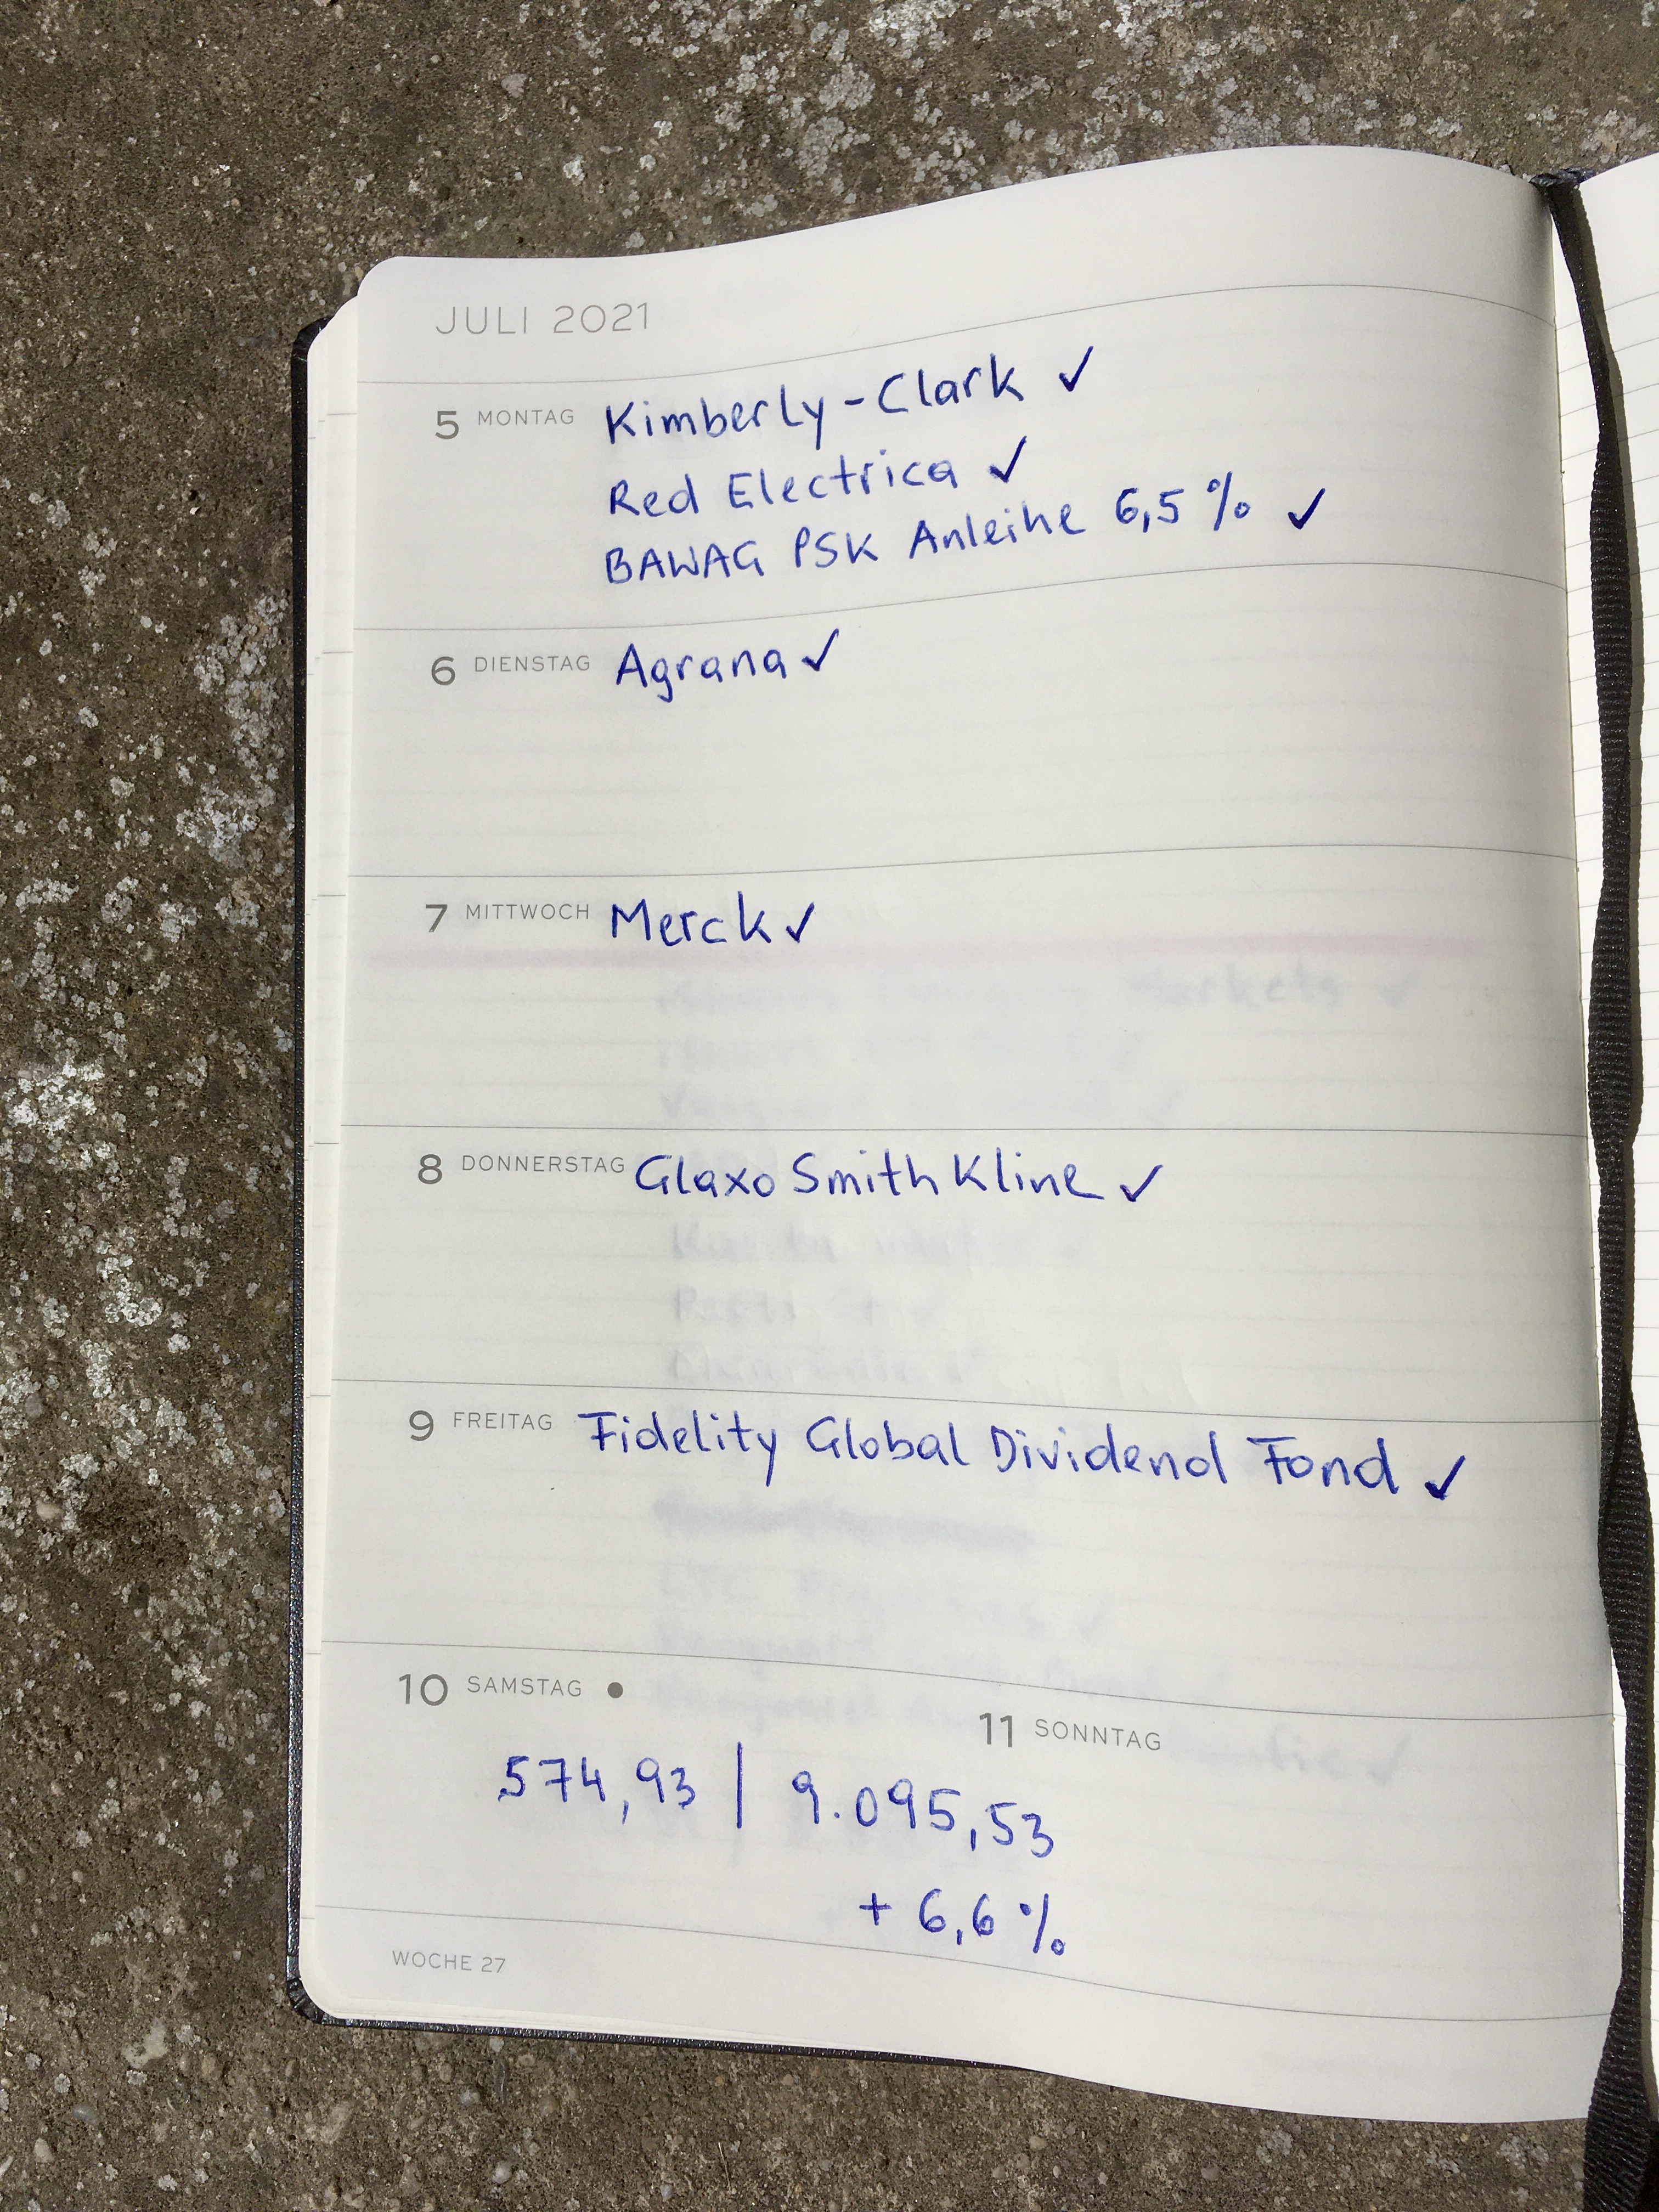 JULI 2021
5 MONTAG Kimberly-Clark ✓
Red Electrica ✓
BAWAG PSK Anleihe 6,5 % ✓
6 DIENSTAG Agrana ✓
7 MITTWOCH Merck ✓
8 DONNERSTAG Glaxo Smith Kline ✓
9 FREITAG Fidelity Global Dividend Fond ✓
10 SAMSTAG ●
11 SONNTAG
574,93 | 9.095,53
+ 6,6 %
WOCHE 27